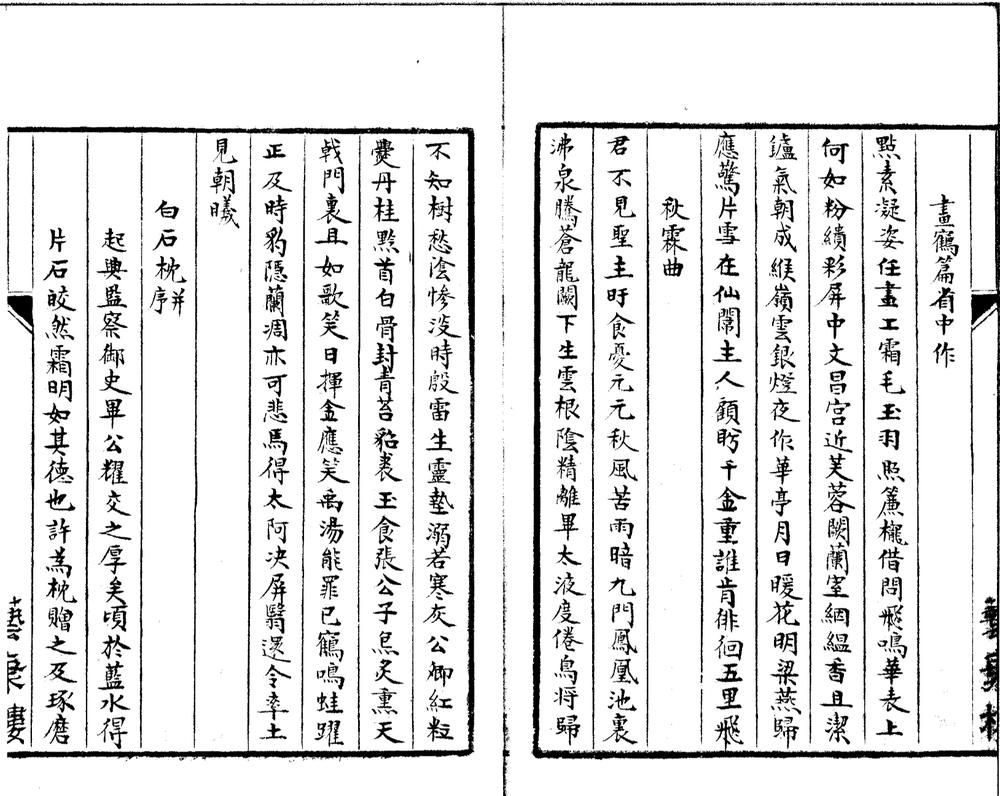 畫鶴篇省中作
點素凝姿任畫工霜毛玉羽照簾櫳借問飛鳴華表上
何如粉繢彩屏中文昌宮近芙蓉闕蘭室絪縕香且潔
鑪氣朝成緱嶺雲銀燈夜作華亭月日暖花明梁燕歸
應驚片雪在仙闈主人顧眄千金重誰肯徘徊五里飛
秋霖曲
君不見聖主旰食憂元元秋風苦雨暗九門鳳凰池裏
沸泉騰蒼龍闕下生雲根陰精離畢太液度倦鳥將歸
不知樹愁陰慘淡時殷雷生靈墊溺若寒灰公卿紅粒
爨丹桂黔首白骨封青苔貂裘玉食張公子炰炙熏天
戟門裏且如歌笑日揮金應笑禹湯能罪已鶴鳴蛙躍
正及時豹隱蘭凋亦可悲焉得太阿決屏翳還令率土
見朝曦
白石枕并序
起與監察御史畢公耀交之厚矣頃於藍水得
片石皎然霜明如其德也許為枕贈之及琢磨